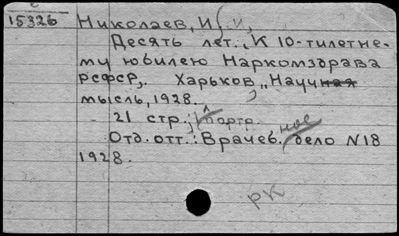 15326
Николаев, И. И.
Десять лет. „К 10-тилетне-
му юбилею Наркомздрава
РСФСР„. Харьков „Научная
мысль, 1928.
21 стр.; 1 портр.
Отд. отт.: Врачеб.ное дело N18
1928.
РК